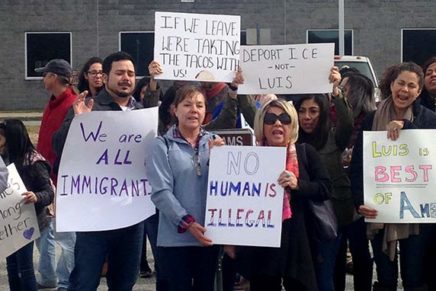 IF WE LEAVE,
WE'RE TAKING
THE TACOS WITH
US!
DEPORT ICE
-NOT-
LUIS
We are
ALL
IMMIGRANT
NO
HUMAN is
ILLEGAL
LUIS is
BEST
of AM
together